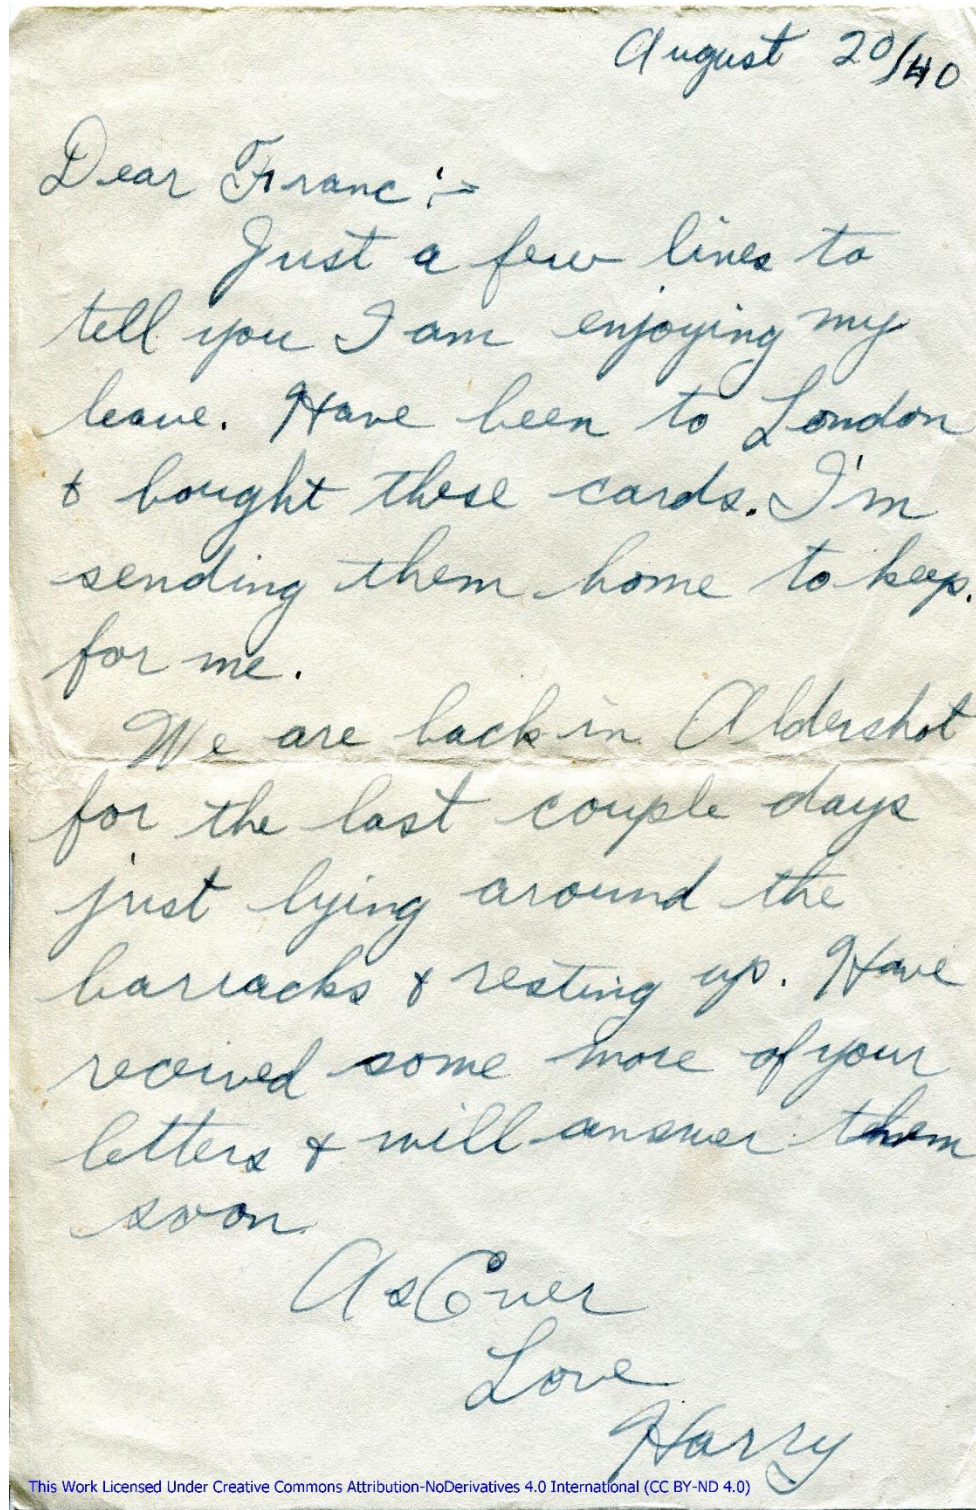 August 20/40
Dear Franc :-
Just a few lines to
tell you I am enjoying my
leave. Have been to London
& bought these cards. I'm
sending them home to keep.
for me.
We are back in Aldershot
for the last couple days
just lying around the
barracks & resting up. Have
received some more of your
letters & will answer them
soon
As Ever
Love
Harry
This Work Licensed Under Creative Commons Attribution-NoDerivatives 4.0 International (CC BY-ND 4.0)